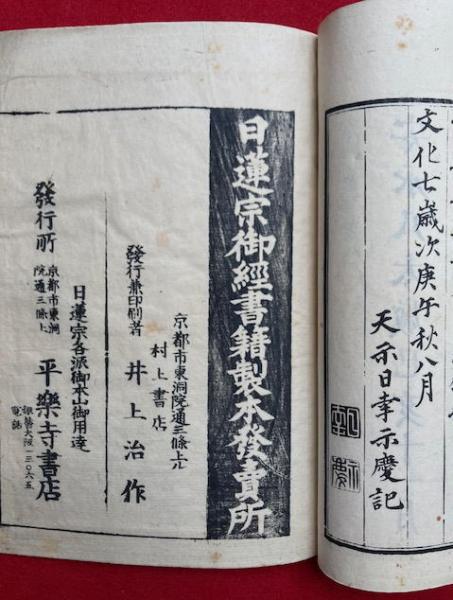 文化七歳次庚午秋八月
天禾日幸示慶記
日蓮宗御經書籍製本發賣所
京都市東洞院通三條上ル
村上書店
發行兼印刷者
井上治作
日蓮宗各派御本山御用達
發行所
京都市東洞
院通三條上
平樂寺書店
電話
振替大阪一三〇六五